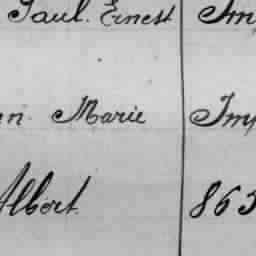 Paul. Ernest Im
en Marie Imp
Albert 865